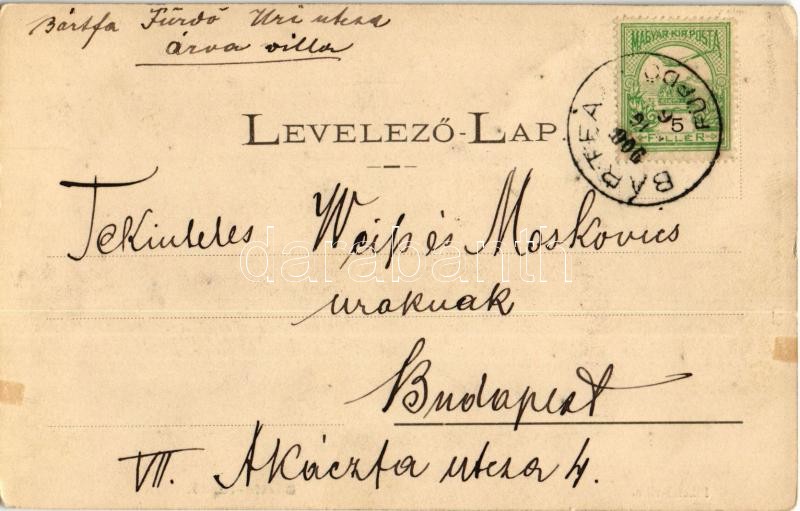 Bártfa Fürdő Uri utcza
árva villa
MAGYAR KIR. POSTA
5
FILLÉR
BÁRTFA FÜRDŐ
LEVELEZŐ-LAP.
Tekintetes Weiß és Moskovics
uraknak
darabanth
Budapest
VII. Akáczfa utcza 4.